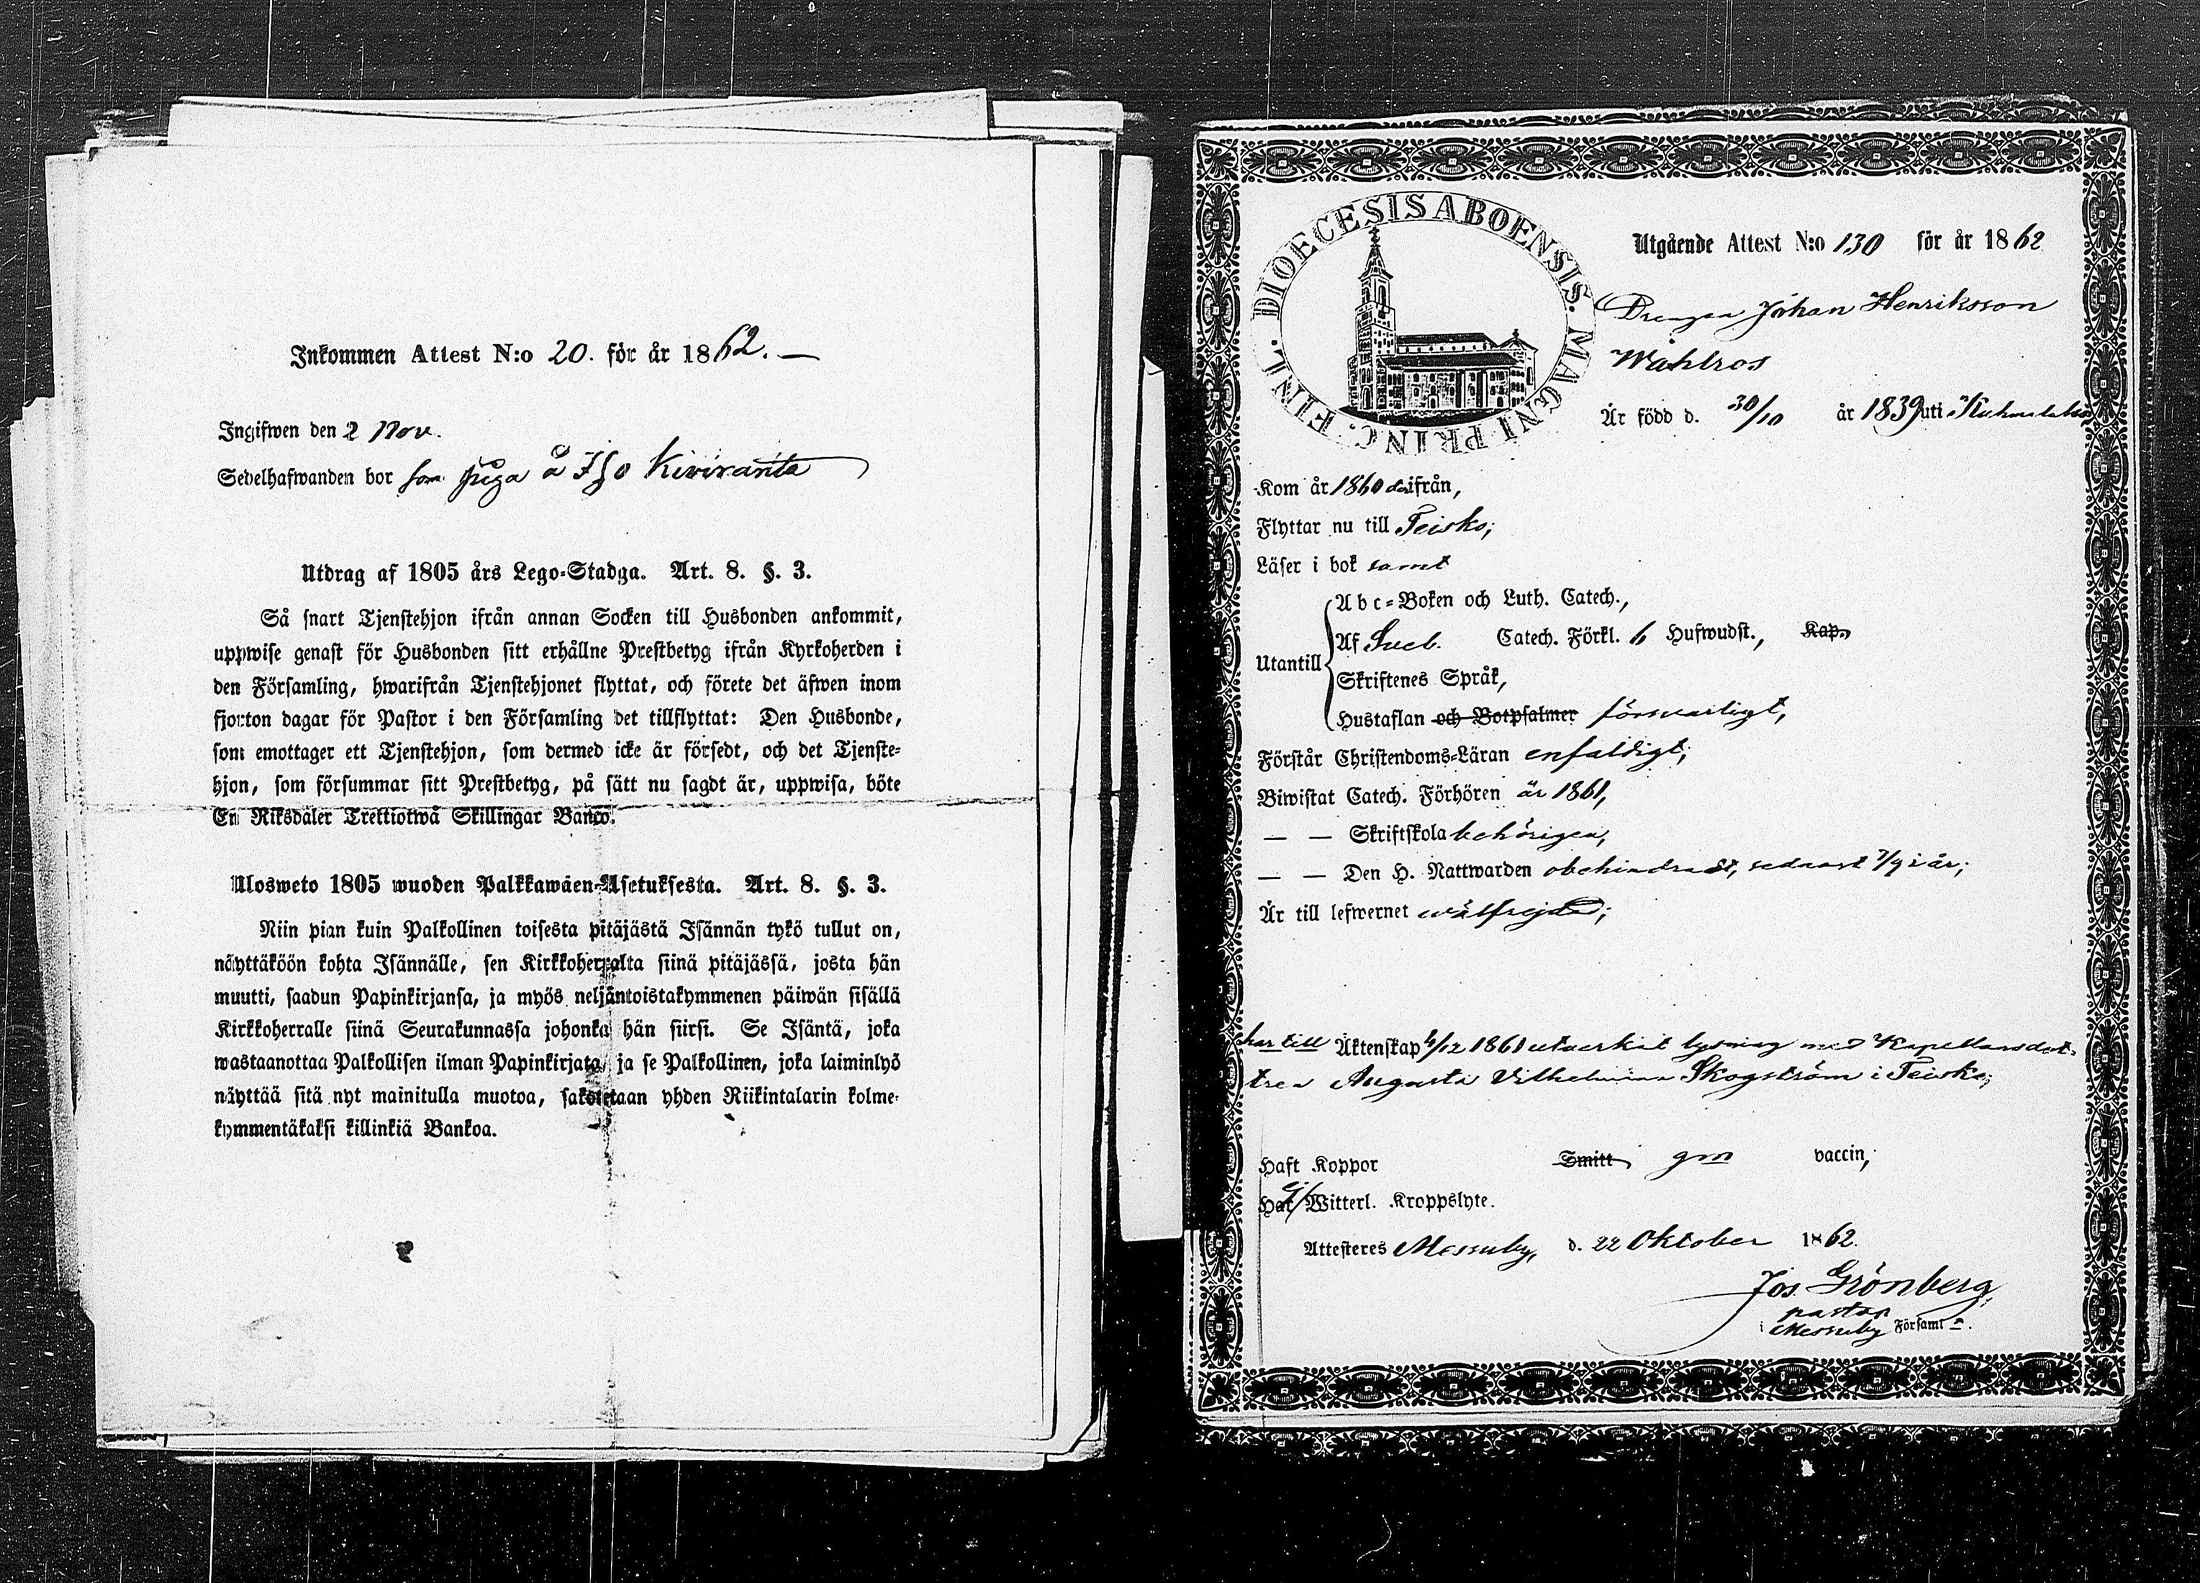 Inkommen Attest N:o 20. för år 1862. —
Ingifwen den 2 Nov.
Sedelhafwanden bor som piga å Iso Kiviranta
Utdrag af 1805 års Lego-Stadga. Art. 8. §. 3.
Så snart Tjenstehjon ifrån annan Socken till Husbonden ankommit,
uppwise genast för Husbonden sitt erhållne Prestbetyg ifrån Kyrkoherden i
den Församling, hwarifrån Tjenstehjonet flyttat, och förete det äfwen inom
fjorton dagar för Pastor i den Församling det tillflyttat: Den Husbonde,
som emottager ett Tjenstehjon, som dermed icke är försedt, och det Tjenste-
hjon, som försummar sitt Prestbetyg, på sätt nu sagdt är, uppwisa, böte
En Riksdaler Trettiotwå Skillingar Banco.
Ulosweto 1805 wuoden Palkkawäen-Asetuksesta. Art. 8. §. 3.
Niin pian kuin Palkollinen toisesta pitäjästä Isännän tykö tullut on,
näyttäköön kohta Isännälle, sen Kirkkoherralta siinä pitäjässä, josta hän
muutti, saadun Papinkirjansa, ja myös neljäntoistakymmenen päiwän sisällä
Kirkkoherralle siinä Seurakunnassa johonka hän siirsi. Se Isäntä, joka
wastaanottaa Palkollisen ilman Papinkirjata, ja se Palkollinen, joka laiminlyö
näyttää sitä nyt mainitulla muotoa, sakoitetaan yhden Riikintalarin kolme-
kymmentäkaksi killinkiä Bankoa.
DIOECESIS ABOENSIS. MAGNI PRINC. FINL.
Utgående Attest N:o 130 för år 1862
Drengen Johan Henriksson
Wahlros
Är född d. 30/10 år 1839 uti Kuhmalaks
Kom år 1860 därifrån,
Flyttar nu till Teisko;
Läser i bok samt
Abc-Boken och Luth. Catech.,
Af Sveb. Catech. Förkl. 6 Hufwudst., Kap.,
Utantill
Skriftenes Språk,
Hustaflan och Botpsalmer försvarligt,
Förstår Christendoms-Läran enfaldigt;
Biwistat Catech. Förhören år 1861,
— — Skriftskola behörigen,
— — Den H. Nattwarden obehindradt, sednast 7/9 i år;
Är till lefwernet wälfrejdad;
har till Äktenskap 4/12 1861 utverkat lysning med Kapellansdot-
tren Augusta Vilhelmina Skogström i Teisko;
Haft Koppor Smitt gm vaccin,
Har ej Witterl. Kroppslyte.
Attesteres Messuby, d. 22 Oktober 1862.
Jos. Grönberg,
pastor
i Messuby Församl.